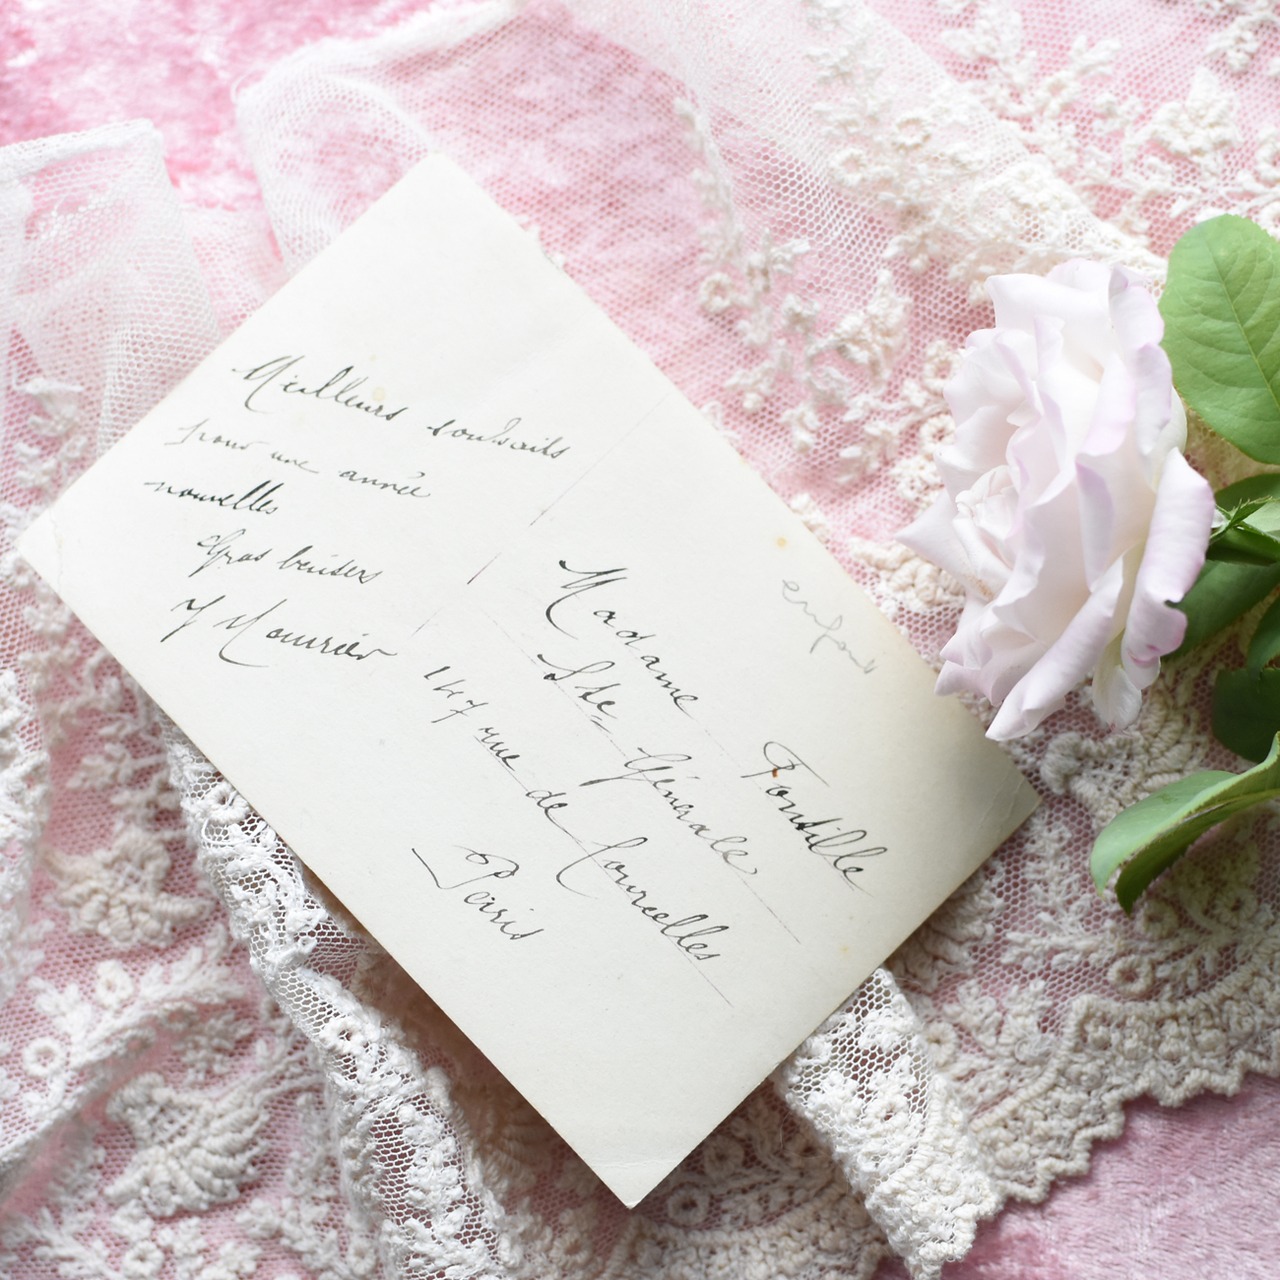 Meilleurs souhaits
pour une année
nouvelles
Gros baisers
Y Mourier
Madame Fontille
Sté Générale
147 rue de Courcelles
Paris
enfant